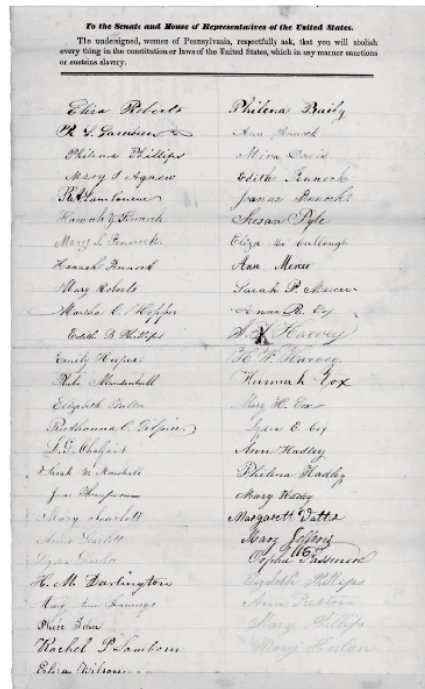 To the Senate and House of Representatives of the United States.
The undersigned, women of Pennsylvania, respectfully ask, that you will abolish
every thing in the constitution or laws of the United States, which in any manner sanctions
or sustains slavery.
Eliza Roberts
Philena Phillips
Mary S Agnew
Mary S. Pennock
Hannah Pennock
Mary Roberts
Martha C. Hopper
Edith B Phillips
Emily
Phebe Mendenhall
Elizabeth
Ruthanna C.
S. G. Chalfant
Sarah W. Marshall
Jane Thompson
Mary Scarlett
Anna Scarlett
H. M. Darlington
Mary Ann
Phebe John
Rachel P Lamborn
Eliza Wilson
Philena Baily
Ann Pennock
Mira David
Edith Pennock
Joanna Pennock
Susan Pyle
Eliza
Ann Mercer
Sarah P. Mercer
Anna R. Cox
S. Harvey
H. W. Harvey
Hannah Cox
Mary H. Cox
Lydia E. Cox
Ann Hadley
Philena Hadley
Mary
Margarett Watts
Mary Jefferis
116
Orpha Passmore
Elizabeth Phillips
Ann Preston
Mary Phillips
Mary Harlan